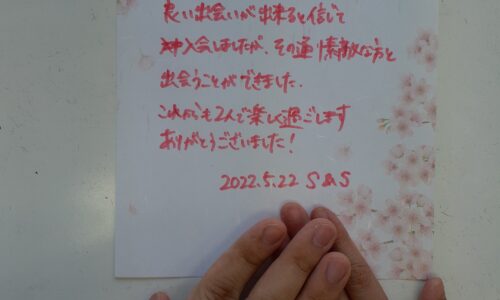 良い出会いが出来ると信じて
入会しましたが、その通り素敵な方と
出会うことができました。
これからも2人で楽しく過ごします
ありがとうございました!
2022.5.22 S&S